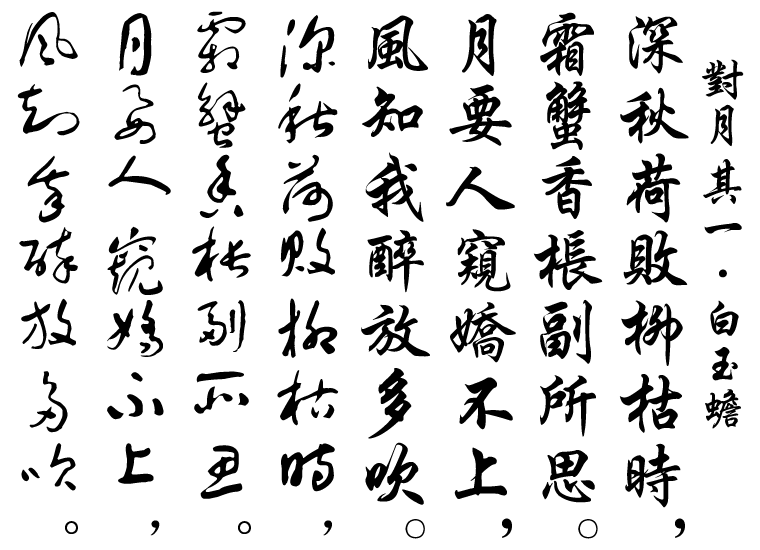 對月其一·白玉蟾
深秋荷敗柳枯時，
霜蟹香棖副所思。
月要人窺嬌不上，
風知我醉放多吹。
深秋荷敗柳枯時，
霜蟹香棖副所思。
月要人窺嬌不上，
風知我醉放多吹。